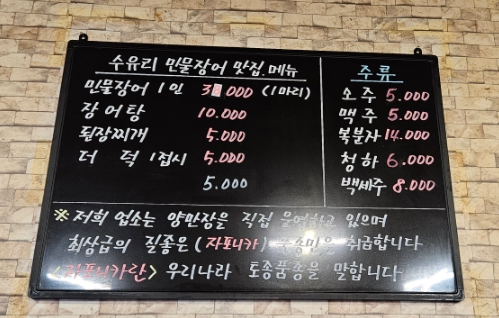 수유리 민물장어 맛집.메뉴
민물장어 1인 3 000 (1마리)
장어탕 10.000
된장찌개 5.000
더덕 1접시 5.000
5.000
주류
소주 5.000
맥주 5.000
복분자 14.000
청하 6.000
백세주 8.000
※ 저희 업소는 양만장을 직접 운영하고 있으며
최상급의 질좋은 (자포니카) 취급합니다
<자포니카란> 우리나라 토종품종을 말합니다